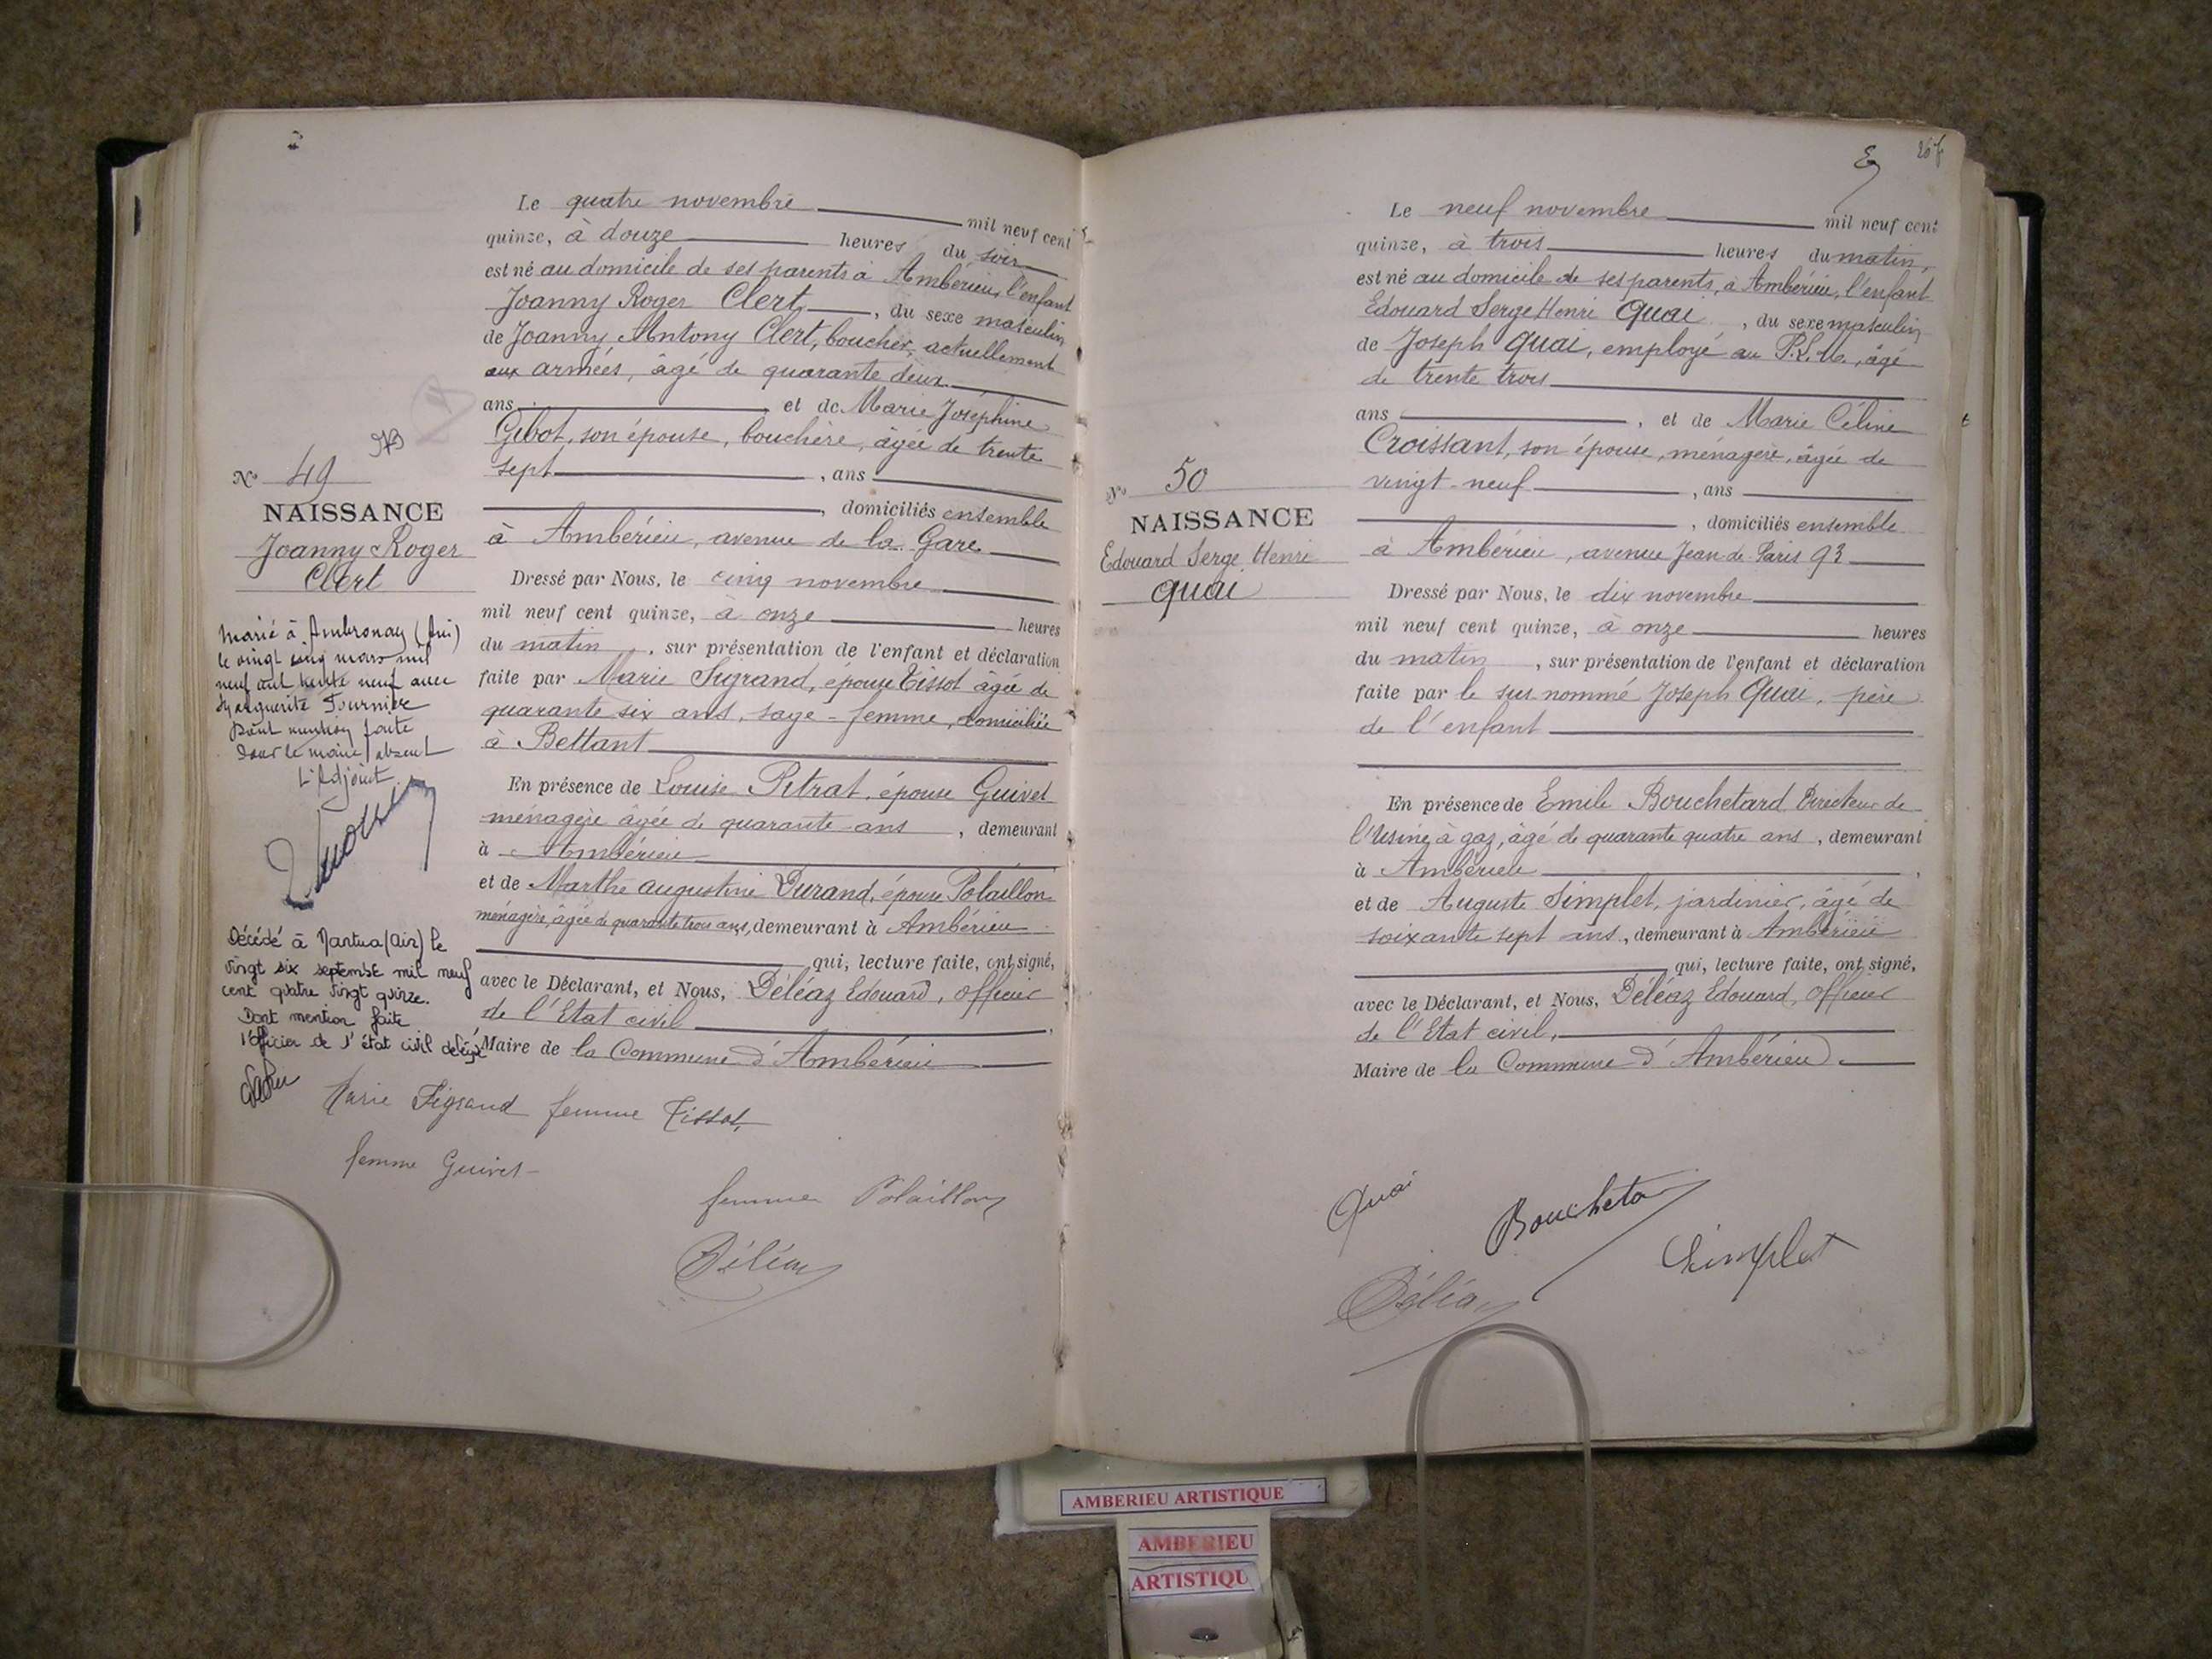 Le quatre novembre mil neuf cent
quinze, à douze heures du soir
est né au domicile de ses parents à Ambérieu, l'enfant
Joanny Roger Clert, du sexe masculin
de Joanny Antony Clert, boucher, actuellement
aux armées, âgé de quarante deux
ans et de Marie Joséphine
Gibot, son épouse, bouchère, âgée de trente
sept, ans
, domiciliés ensemble
à Ambérieu, avenue de la Gare
Dressé par Nous, le cinq novembre
mil neuf cent quinze, à onze heures
du matin, sur présentation de l'enfant et déclaration
faite par Marie Sigrand, épouse Tissot âgée de
quarante six ans, sage-femme, domiciliée
à Bettant
En présence de Louise Pitrat, épouse Guivet
ménagère âgée de quarante ans, demeurant
à Ambérieu
et de Marthe Augustine Durand, épouse Polaillon
ménagère, âgée de quarante trois ans, demeurant à Ambérieu
qui, lecture faite, ont signé,
avec le Déclarant, et Nous, Déléaz Edouard, officier
de l'Etat civil,
Maire de la Commune d'Ambérieu
Marie Sigrand femme Tissot
femme Guivet
femme Polaillon
Déléaz
N° 49
NAISSANCE
Joanny Roger
Clert
Marié à Ambronay (Ain)
le vingt cinq mars mil
neuf cent trente neuf avec
Marguerite Fournier
Dont mention faite
Pour le maire absent
L'Adjoint
Décédé à Nantua (Ain) le
vingt six septembre mil neuf
cent quatre vingt quinze.
Dont mention faite
l'officier de l'état civil délégué
Le neuf novembre mil neuf cent
quinze, à trois heures du matin,
est né au domicile de ses parents, à Ambérieu, l'enfant
Edouard Serge Henri Quai, du sexe masculin
de Joseph Quai, employé au P.L.M., âgé
de trente trois
ans, et de Marie Céline
Croissant, son épouse, ménagère, âgée de
vingt-neuf, ans
, domiciliés ensemble
à Ambérieu, avenue Jean de Paris 93
Dressé par Nous, le dix novembre
mil neuf cent quinze, à onze heures
du matin, sur présentation de l'enfant et déclaration
faite par le sus nommé Joseph Quai, père
de l'enfant
En présence de Emile Bouchetard Directeur de
l'Usine à gaz, âgé de quarante quatre ans, demeurant
à Ambérieu
et de Auguste Simplet, jardinier, âgé de
soixante sept ans, demeurant à Ambérieu
qui, lecture faite, ont signé,
avec le Déclarant, et Nous, Déléaz Edouard, officier
de l'Etat civil,
Maire de la Commune d'Ambérieu.
Quai
Bouchetard
Simplet
Déléaz
N° 50
NAISSANCE
Edouard Serge Henri
Quai
AMBERIEU ARTISTIQUE
AMBERIEU
ARTISTIQU